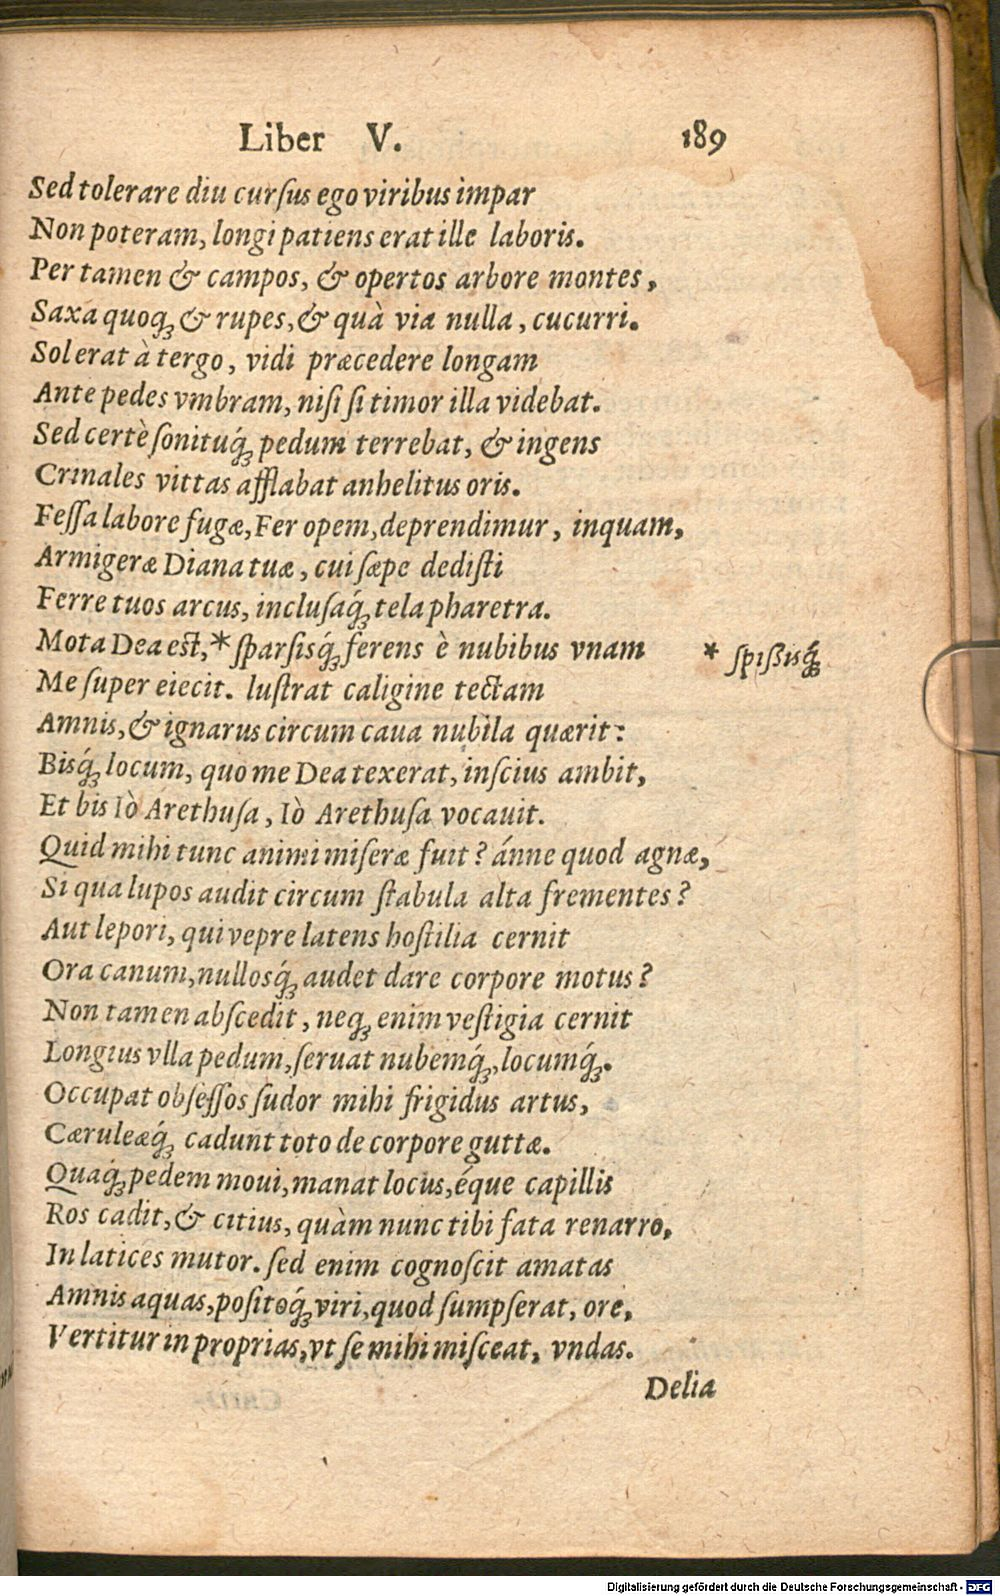 Liber V. 189
Sed tolerare diu cursus ego viribus impar
Non poteram, longi patiens erat ille laboris.
Per tamen & campos, & opertos arbore montes,
Saxa quoqꝫ & rupes, & quà via nulla, cucurri.
Sol erat à tergo, vidi præcedere longam
Ante pedes vmbram, nisi si timor illa videbat.
Sed certè sonituq́ꝫ pedum terrebat, & ingens
Crinales vittas afflabat anhelitus oris.
Fessa labore fugæ, Fer opem, deprendimur, inquam,
Armigeræ Diana tuæ, cui sæpe dedisti
Ferre tuos arcus, inclusaq́ꝫ tela pharetra.
Mota Dea est, * sparsisq́ꝫ ferens è nubibus vnam * spißisq́ꝫ
Me super eiecit. lustrat caligine tectam
Amnis, & ignarus circum caua nubila quærit:
Bisq́ꝫ locum, quo me Dea texerat, inscius ambit,
Et bis Iò Arethusa, Iò Arethusa vocauit.
Quid mihi tunc animi miseræ fuit? ánne quod agnæ,
Si qua lupos audit circum stabula alta frementes?
Aut lepori, qui vepre latens hostilia cernit
Ora canum, nullosq́ꝫ audet dare corpore motus?
Non tamen abscedit, neqꝫ enim vestigia cernit
Longius vlla pedum, seruat nubemq́ꝫ, locumq́ꝫ.
Occupat obsessos sudor mihi frigidus artus,
Cæruleæq́ꝫ cadunt toto de corpore guttæ.
Quaq́ꝫ pedem moui, manat locus, éque capillis
Ros cadit, & citius, quàm nunc tibi fata renarro,
In latices mutor. sed enim cognoscit amatas
Amnis aquas, positoq́ꝫ viri, quod sumpserat, ore,
Vertitur in proprias, vt se mihi misceat, vndas.
Delia
Digitalisierung gefördert durch die Deutsche Forschungsgemeinschaft - DFG